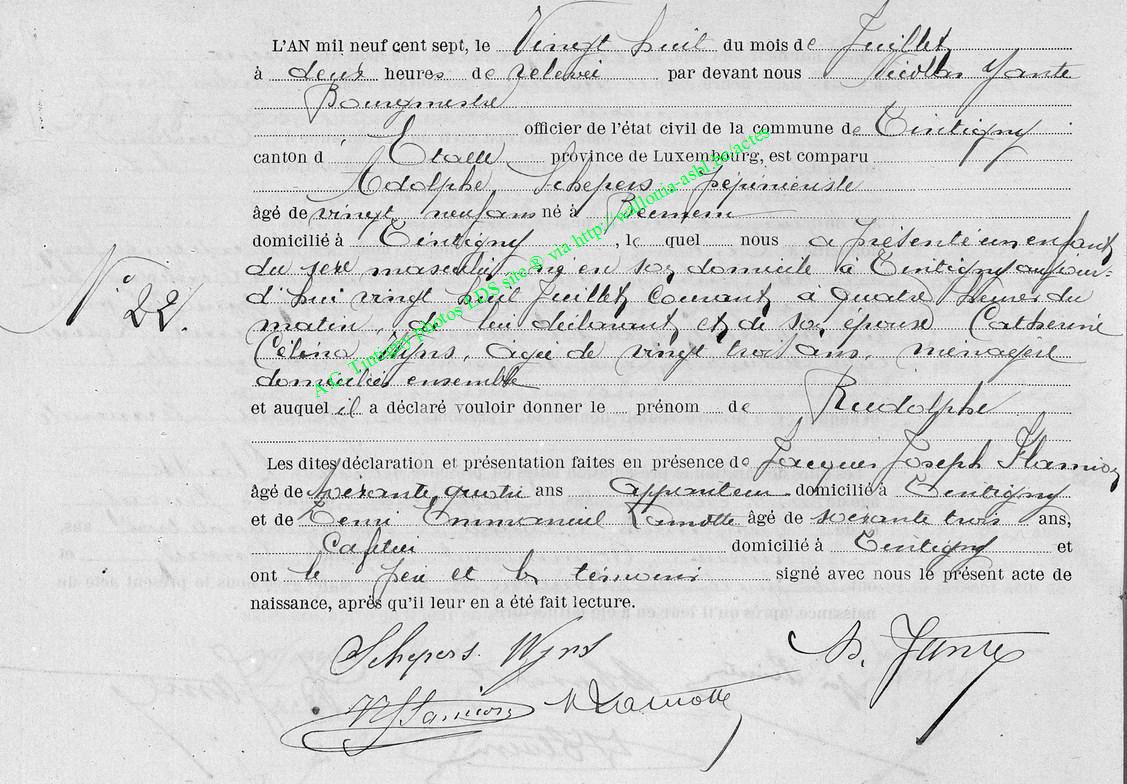 L'AN mil neuf cent sept, le Vingt huit du mois de Juillet
à deux heures de relevée par devant nous Nicolas Jante
Bourgmestre
officier de l'état civil de la commune de Tintigny
canton d' Etalle province de Luxembourg, est comparu
Adolphe Schepers, pépiniériste
âgé de vingt neuf ans né à
domicilié à Tintigny, le quel nous a présenté un enfant
du sexe masculin, né en son domicile à Tintigny aujour-
d'hui vingt huit Juillet courant à quatre heures du
matin, de lui déclarant et de son épouse Catherine
Célina Wyns, agée de vingt trois ans, ménagère
domiciliés ensemble
et auquel il a déclaré vouloir donner le prénom de Rudolphe
N° 22.
Les dites déclaration et présentation faites en présence de Jacques Joseph Flamion
âgé de soixante quatre ans appariteur domicilié à Tintigny
et de Henri Emmanuel Lamotte âgé de soixante trois ans,
Cafetier domicilié à Tintigny et
ont le père et les témoins signé avec nous le présent acte de
naissance, après qu'il leur en a été fait lecture.
Schepers. Wyns
Flamion Lamotte
N. Jante
A.C. Tintigny photos LDS site ® via http://wallonia-asbl.be/actes